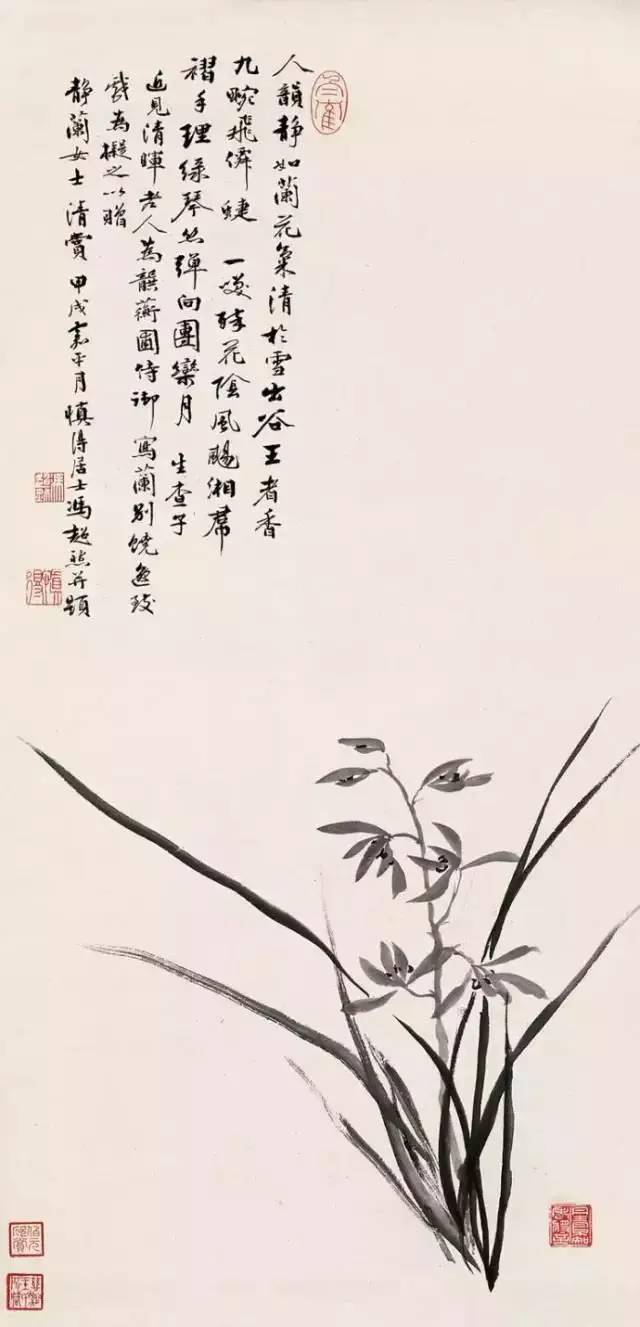 人韻静如蘭花氣清於雪出谷王者香
九畹飛僊蜨 一花陰風颺湘帬
褶手理緑琴丝彈向團欒月 生查子
近見清暉老人為薌圃侍御寫蘭别饒逸致
戲為擬之以贈
静蘭女士清賞 甲戌嘉平月慎得居士馮超然并題